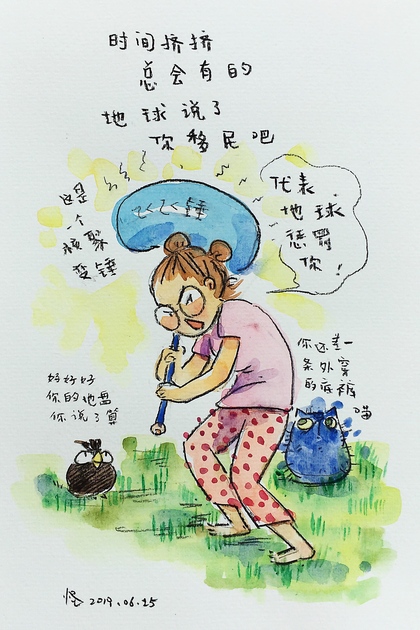 时间挤挤
总会有的
地球说了
你移民吧
代表
地球
惩罚
你!
这是
一个
核聚
变锤
你还差一
条外穿
的底裤
喵
好好好
你的地盘
你说了算
怪 2019.06.25